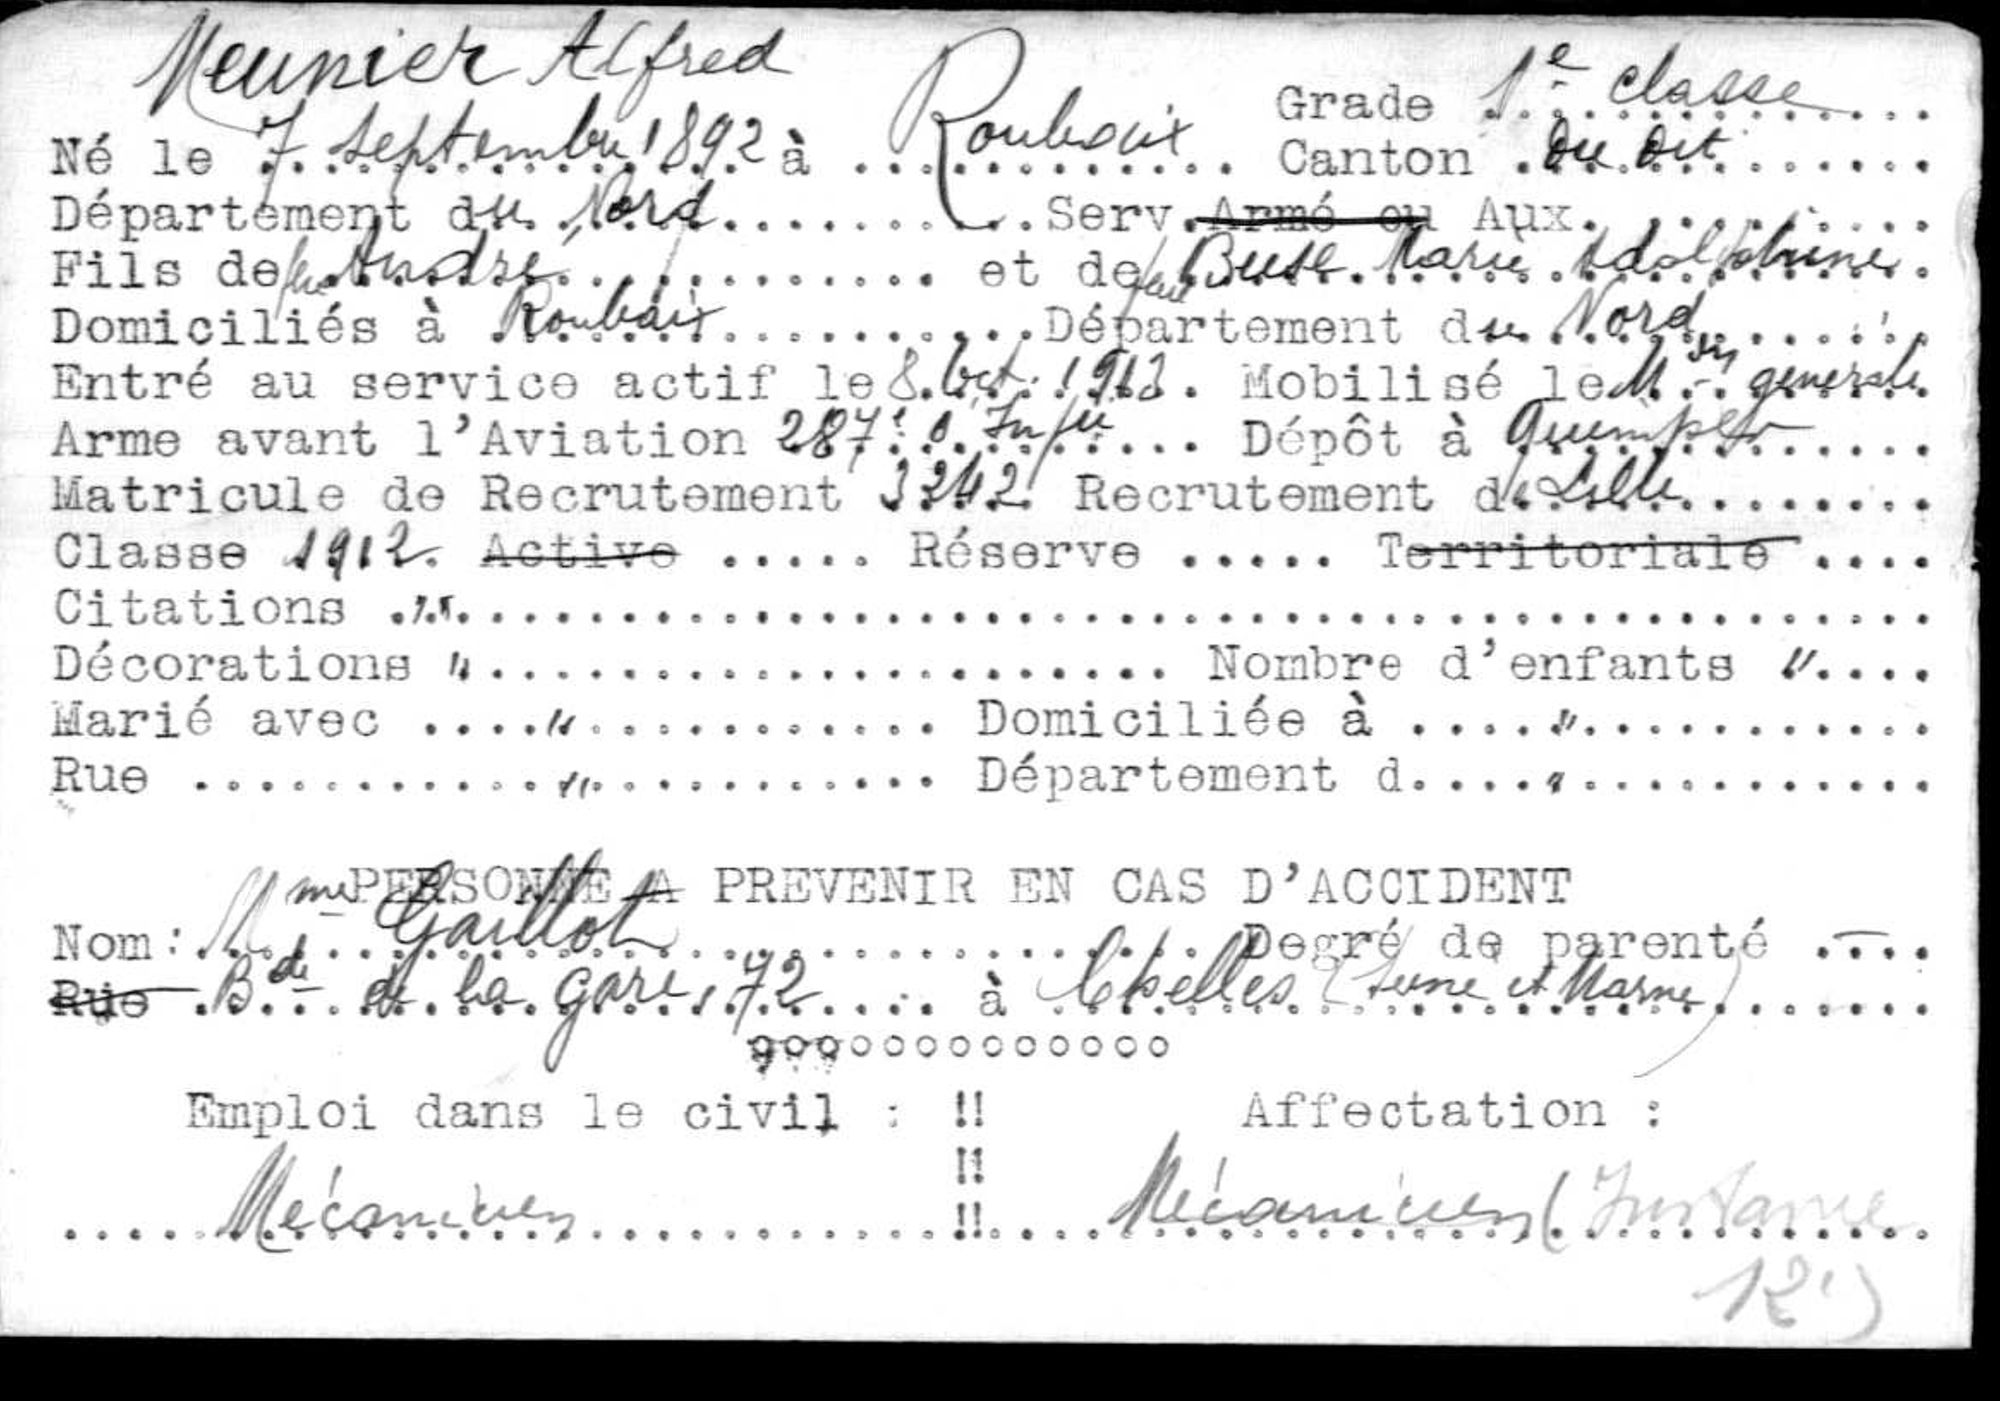 Meunier Alfred
Grade 1e classe
Né le 7 Septembre 1892 à Roubaix Canton du dit
Département du Nord Serv. Armé ou Aux.
Fils de feu André et de feue Buse Marie Adolphine
Domiciliés à Roubaix Département du Nord
Entré au service actif le 8 Oct. 1913. Mobilisé le Mon générale
Arme avant l'Aviation 287e d'Infie Dépôt à Quimper
Matricule de Recrutement 3242 Recrutement de Lille
Classe 1912. Active ..... Réserve ..... Territoriale ....
Citations "
Décorations " Nombre d'enfants "
Marié avec " Domiciliée à "
Rue " Département d "
PERSONNE A PREVENIR EN CAS D'ACCIDENT
Nom: Mme Gaillot Degré de parenté —
Rue Bd de la Gare, 72 à Chelles (Seine et Marne)
ooooooooooooo
Emploi dans le civil : !! Affectation :
!!
Mécanicien !! Mécanicien (
12')